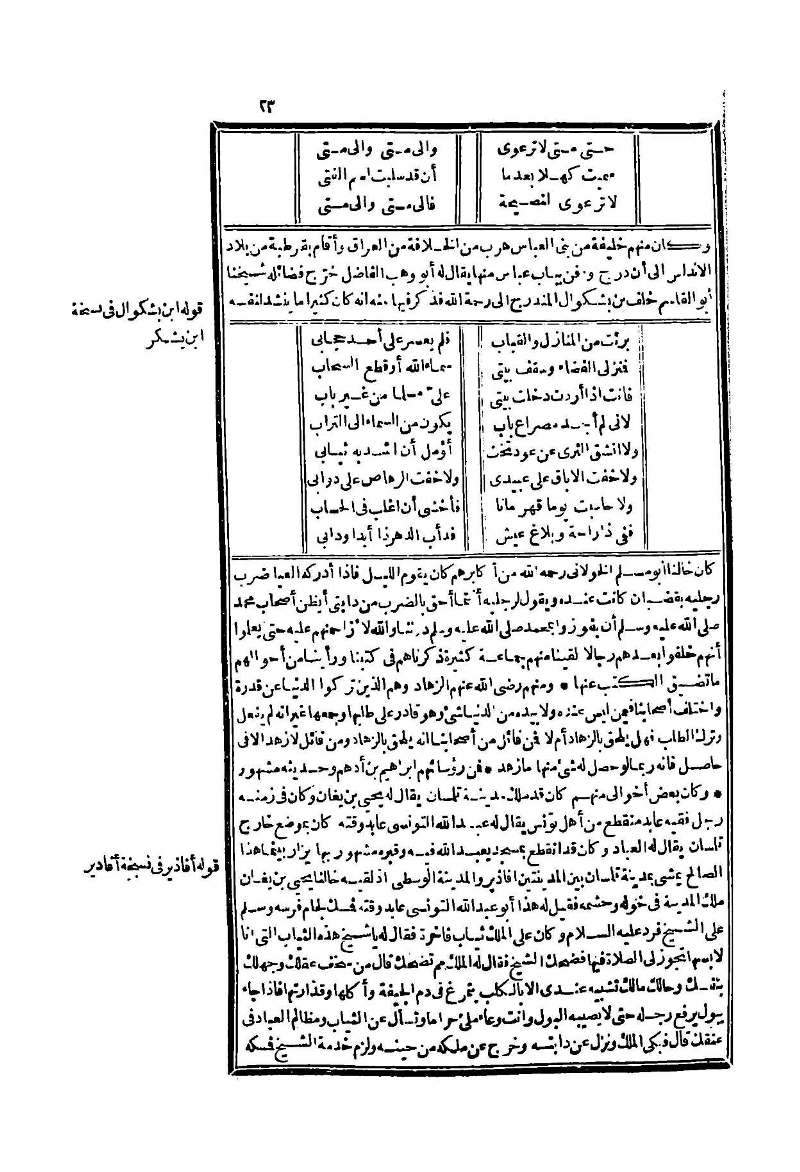 ٢٣
حتى متى لا ترعوى والى متى والى متى
مميت كهلا بعدما أن قد سلبت اسم الفتى
لا ترعوى لنصيحة فالى متى والى متى
وكان منهم خليفة من بنى العباس هرب من الخلافة من العراق وأقام بقرطبة من بلاد
الاندلس الى أن درج ودفن بباب عباس منها يقال له أبو وهب الفاضل خرّج فضائله شيخنا
أبو القاسم خلف بن بشكوال المندرج الى رحمة الله فذكر فيها عنه انه كان كثيرا ما ينشد لنفسه
قوله ابن بشكوال فى نسخة
ابن بشكر
برئت من المنازل والقباب فلم يعسر على أحد حجابى
فمنزلى الفضاء وسقف بيتى سماء الله أو قطع السحاب
فانت اذا أردت دخلت بيتى علىّ مسلما من غير باب
لانى لم أجد مصراع باب يكون من السماء الى التراب
ولا انشق الثرى عن عود تخت أؤمل أن اشد به ثيابى
ولا خفت الاباق على عبيدى ولا خفت الرهاص على دوابى
ولا حاسبت يوما قهرمانا فأخشى أن اغلب فى الحساب
ففى ذا راحة وبلاغ عيش فدأب الدهر ذا أبدا ودابى
كان خالنا أبو مسلم الخولانى رحمه الله من أكابرهم كان يقوم الليل فاذا أدركه العيا ضرب
رجليه بقضبان كانت عنده ويقول لرجليه أنتما أحق بالضرب من دابتى أيظن أصحاب محمد
صلى الله عليه وسلم أن يفوزوا بمحمد صلى الله عليه وسلم دوننا والله لا زاحمنهم عليه حتى يعلوا
أنهم خلفوا بعدهم رجالا لقينا منهم جماعة كثيرة ذكرناهم فى كتبنا ورأينا من أحوالهم
ما تضيق الكتب عنها • ومنهم رضى الله عنهم الزهاد وهم الذين تركوا الدنيا عن قدرة
واختلف أصحابنا فيمن ليس عنده ولا بيده من الدنيا شئ وهو قادر على طلبها وجمعها غير انه لم يفعل
وترك الطلب فهل يلحق بالزهاد أم لا فمن قائل من أصحابنا انه يلحق بالزهاد ومن قائل لا زهد الا فى
حاصل فانه ربما لو حصل له شئ منها ما زهد • فمن رؤسائهم ابراهيم بن أدهم وحديثه مشهور
• وكان بعض أخوالى منهم كان قد ملك مدينة تلمسان يقال له يحيى بن يغان وكان فى زمنه
رجل فقيه عابد منقطع من أهل تونس يقال له عبد الله التونسى عابد وقته كان بموضع خارج
تلسان يقال له العباد وكان قد انقطع بمسجد يعبد الله فيه وقبره مشهور بها يزار بينما هذا
الصالح يمشى بمدينة تلسان بين المدينتين اقادير والمدينة الوسطى اذ لقيه خالنا يحيى بن يغان
قوله أقادير فى نسخة أقادير
ملك المدينة فى خوله وحشمه فقيل له هذا أبو عبد الله التونسى عابد وقته فمسك لجام فرسه وسلم
على الشيخ فرد عليه السلام وكان على الملك ثياب فاخرة فقال له يا شيخ هذه الثياب التى انا
لابسها اتجوز لى الصلاة فيها فضحك الشيخ فقال له الملك مم تضحك قال من سخف عقلك وجهلك
بنفسك وحالك مالك تشبيه عندى الا بالكلب يتمرغ فى دم الجيفة وأكلها وقذارتها فاذا جاء
يبول يرفع رجله حتى لا يصيبه البول وانت وعاء ملئ حراما وتسأل عن الثياب ومظالم العباد فى
عنقك قال فبكى الملك ونزل عن دابته وخرج عن ملكه من حينه ولزم خدمة الشيخ فمسكه